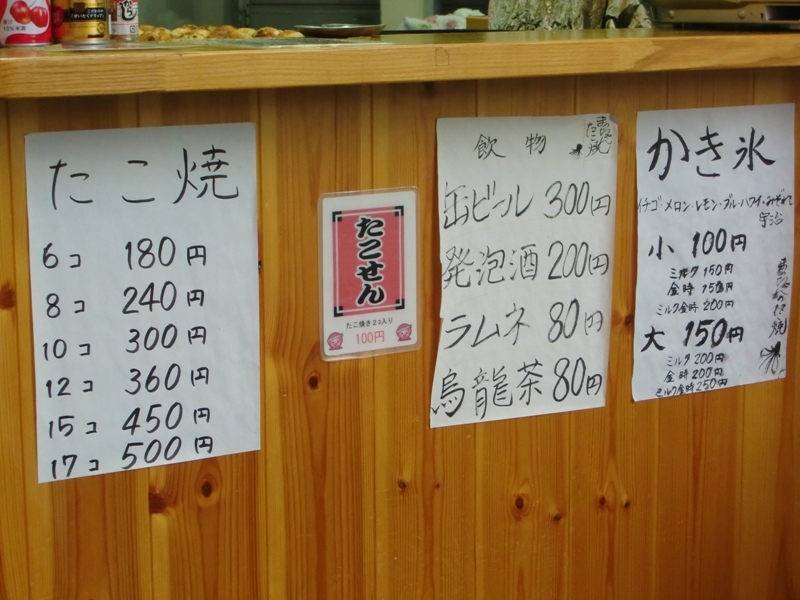 たこ焼
6コ 180円
8コ 240円
10コ 300円
12コ 360円
15コ 450円
17コ 500円
たこせん
たこ焼き2コ入り
100円
飲物
缶ビール 300円
発泡酒 200円
ラムネ 80円
烏龍茶 80円
かき氷
イチゴ・メロン・レモン・ブルーハワイ・みぞれ
宇治
小 100円
ミルク 150円
金時 150円
ミルク金時 200円
大 150円
ミルク 200円
金時 200円
ミルク金時 250円